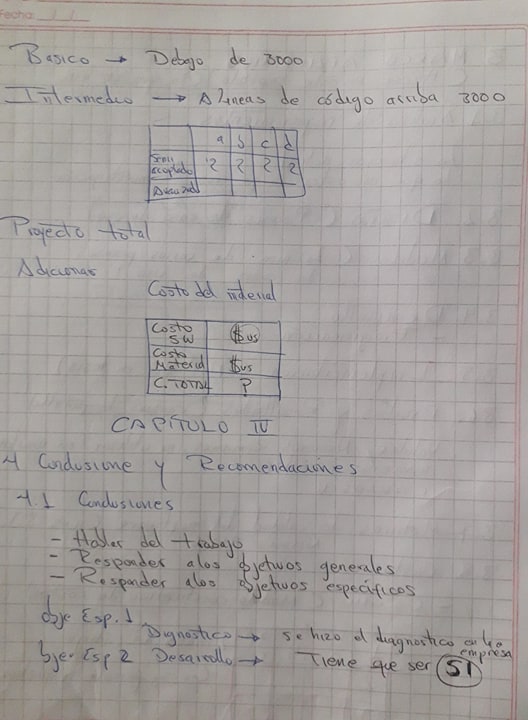 Fecha: / /
Basico → Debajo de 3000
Intermedio → A lineas de código arriba 3000
a b c d
Semi acoplado ? ? ? ?
Avanzado
Proyecto total
Adicionar
Costo del material
Costo SW $us
Costo Material $us
C. TOTAL ?
CAPÍTULO IV
4 Conclusione y Recomendaciones
4.1 Conclusiones
- Hablar del trabajo
- Responder a los objetivos generales
- Responder a los objetivos específicos
obje Esp. 1
Dignostico → se hizo el diagnostico en la empresa
bje. Esp 2 Desarrollo → Tiene que ser SI